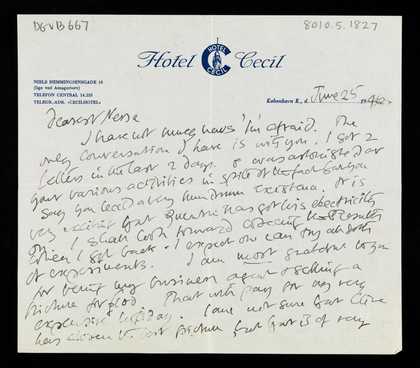 DGVB 667
8010.5.1827
Hotel Cecil
HOTEL CECIL
NIELS HEMMINGSENSGADE 10
(lige ved Amagertorv)
TELEFON CENTRAL 14.235
TELEGR.-ADR. »CECILHOTEL«
København K., d. June 25 19
Dearest Nesse
I have not much news I'm afraid. The
only conversation I have is with you. I got 2
letters in the last 2 days. I was astonished at
your various activities in spite of the fact that you
say you lead a very humdrum existence. It is
very exciting that Quentin has got his electricity
on. I shall look forward to seeing the results
when I get back. I expect we can try all sorts
of experiments. I am most grateful to you
for being my business agent & selling a
picture for £100. That will pay for my very
expensive holiday. I am not sure that Clive
has chosen the best picture but that is of very